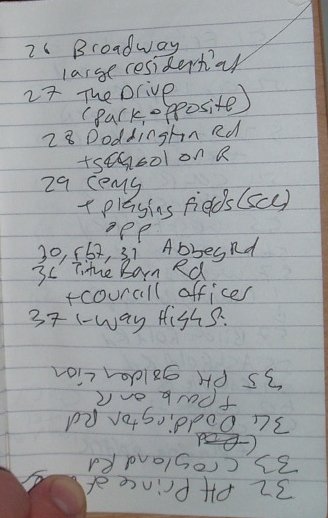 26 Broadway
large residential
27 The Drive
(park opposite)
28 Doddington Rd
+ school on R
29 Cemy
+ playing fields (Sch)
opp
30, 31 Abbey Rd
36 Tithe Barn Rd
+ council offices
37 1-way High St.
32 PH Prince of
33 Croyland Rd
34 Doddington Rd
+ park on R
35 PH golden Lion